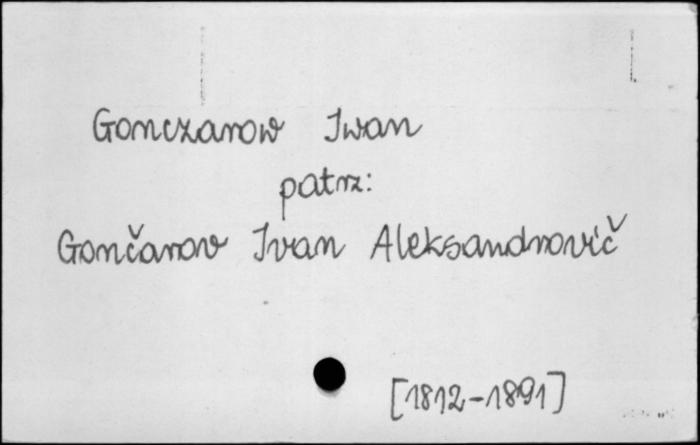 Gonczarow Iwan
patrz:
Gončarov Ivan Aleksandrovič
[1812-1891]